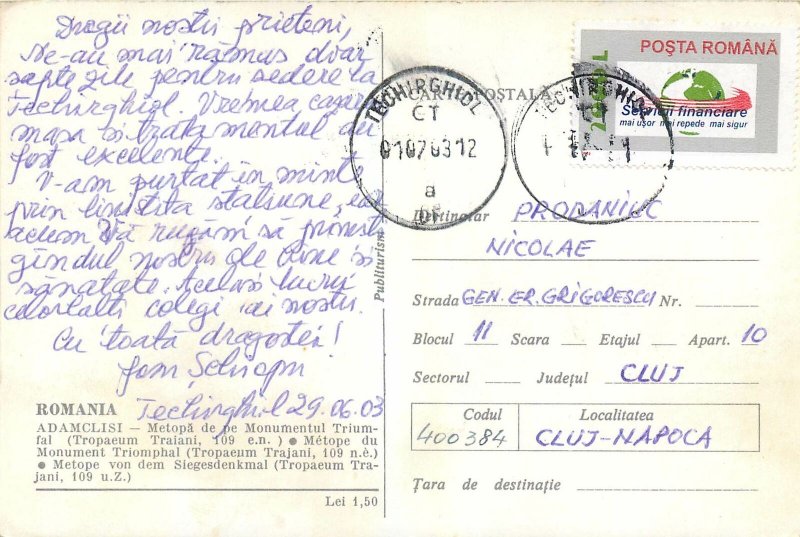 Dragii nostri prieteni,
Ne-au mai rămas doar
sapte zile pentru sedere la
Techirghiol. Vremea cazare
masa si tratamentul au
fost excelente.
V-am purtat in minte
prin linistita statiune, iar
acum Vă rugăm să primesti
gîndul nostru de bine si
sănătate. Acelasi lucru
celorlalti colegi ai nostri.
Cu toată dragostea!
fam
Techirghiol 29.06.03
ROMANIA
ADAMCLISI — Metopă de pe Monumentul Trium-
fal (Tropaeum Traiani, 109 e.n.) ● Métope du
Monument Triomphal (Tropaeum Trajani, 109 n.è.)
● Metope von dem Siegesdenkmal (Tropaeum Tra-
jani, 109 u.Z.)
Lei 1,50
Publiturism
CARTE POSTALĂ
TECHIRGHIOL
CT
01070312
a
OF
TECHIRGHIOL
POȘTA ROMÂNĂ
Servicii financiare
mai ușor mai repede mai sigur
Destinatar PRODANIUC
NICOLAE
Strada GEN. ER. GRIGORESCU Nr.
Blocul 11 Scara Etajul Apart. 10
Sectorul Județul CLUJ
Codul Localitatea
400384 CLUJ-NAPOCA
Țara de destinație